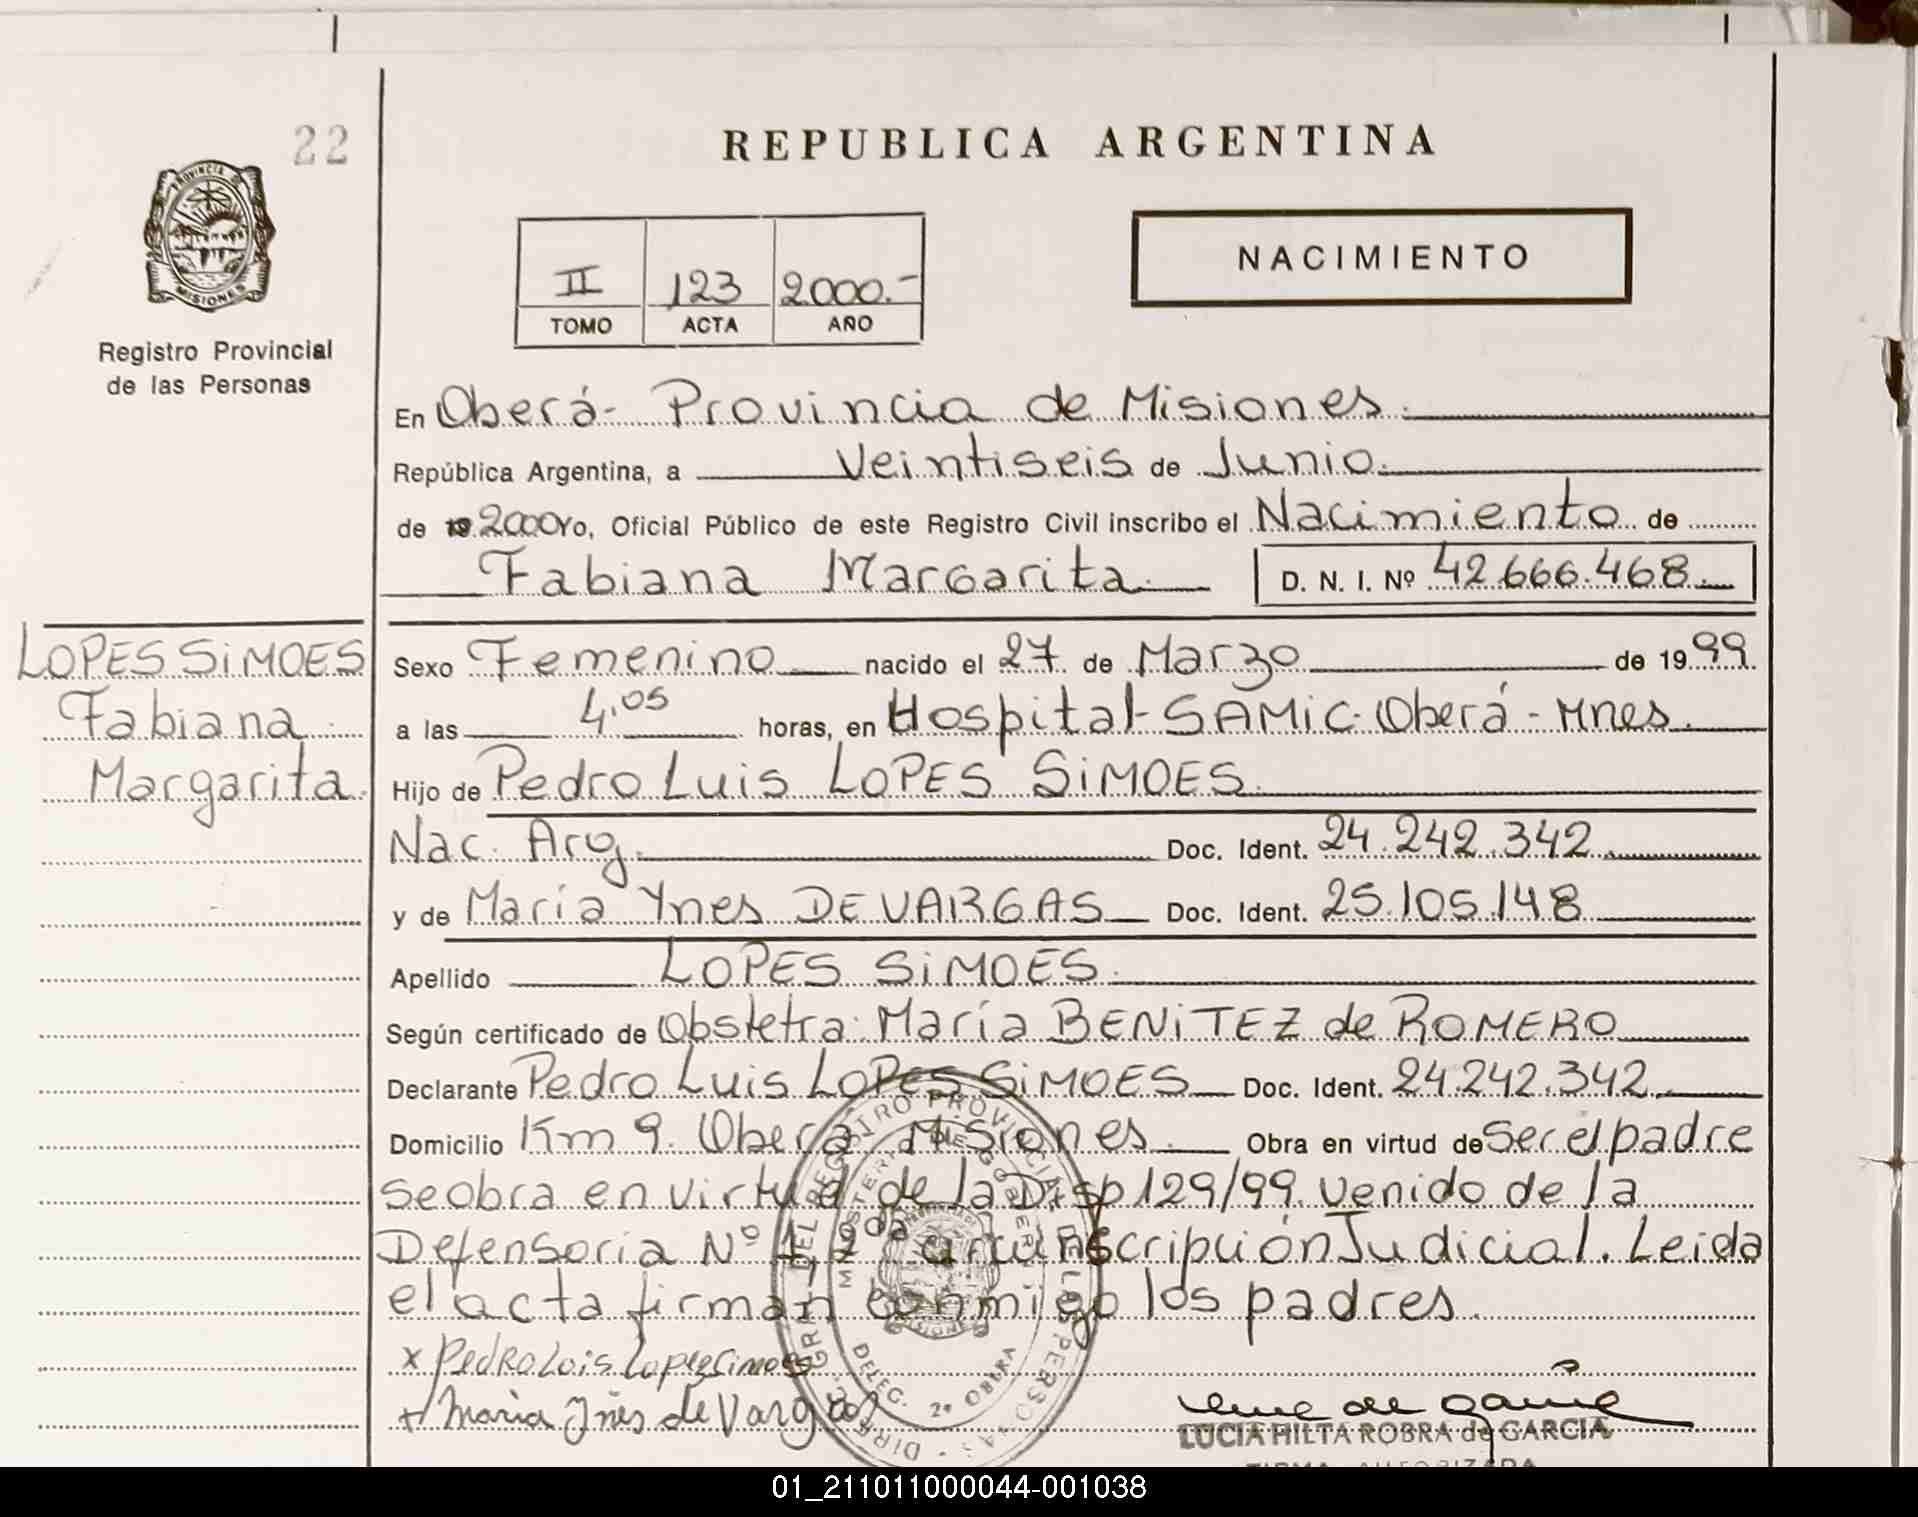 22
REPUBLICA ARGENTINA
PROVINCIA DE
MISIONES
Registro Provincial
de las Personas
II 123 2000.-
TOMO ACTA AÑO
NACIMIENTO
En Oberá- Provincia de Misiones.
República Argentina, a Veintiseis de Junio.
de 19 2000 Yo, Oficial Público de este Registro Civil inscribo el Nacimiento de
Fabiana Margarita. D. N. I. Nº 42.666.468.
LOPES SiMOES
Fabiana
Margarita.
Sexo Femenino nacido el 27 de Marzo de 19 99
a las 4,05 horas, en Hospital-SAMiC-Oberá-Mnes.
Hijo de Pedro Luis LOPES SiMOES.
Nac. Arg. Doc. Ident. 24.242.342.
y de María Ynes DE VARGAS Doc. Ident. 25.105.148
Apellido LOPES SiMOES.
Según certificado de Obstetra: María BENiTEZ de ROMERO
Declarante Pedro Luis LOPES SiMOES Doc. Ident. 24.242.342.
Domicilio Km 9. Oberá Misiones. Obra en virtud de Ser el padre
se obra en virtud de la Disp 129/99. venido de la
Defensoria Nº 1 2da circunscripción Judicial. Leida
el acta firman conmigo los padres.
x Pedro Lois Lopez Simoes
+ Maria Ines de Vargas
DIREC. GRAL. DEL REGISTRO PROVINCIAL DE LAS PERSONAS
MINISTERIO DE GOBIERNO
DELEG. 2º OBERA
LUCIA HILTA ROBRA de GARCIA
FIRMA AUTORIZADA
01_211011000044-001038